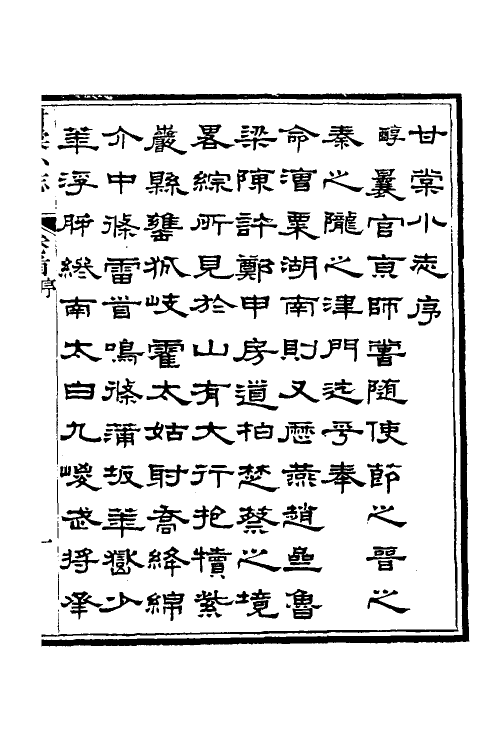 甘棠小志序
醇曩官京師嘗隨使節之晉之
秦之隴之津門迨乎奉
命漕粟湖南則又歷燕趙亝魯
梁陳許鄭申房道柏楚蔡之境
畧綜所見於山有大行抱犢紫
巖縣壅狐岐霍太姑射喬絳綿
介中條雷首鳴條蒲坂華嶽少
華浮肺終南太白九嵕武將承
甘棠小志 卷首序 一